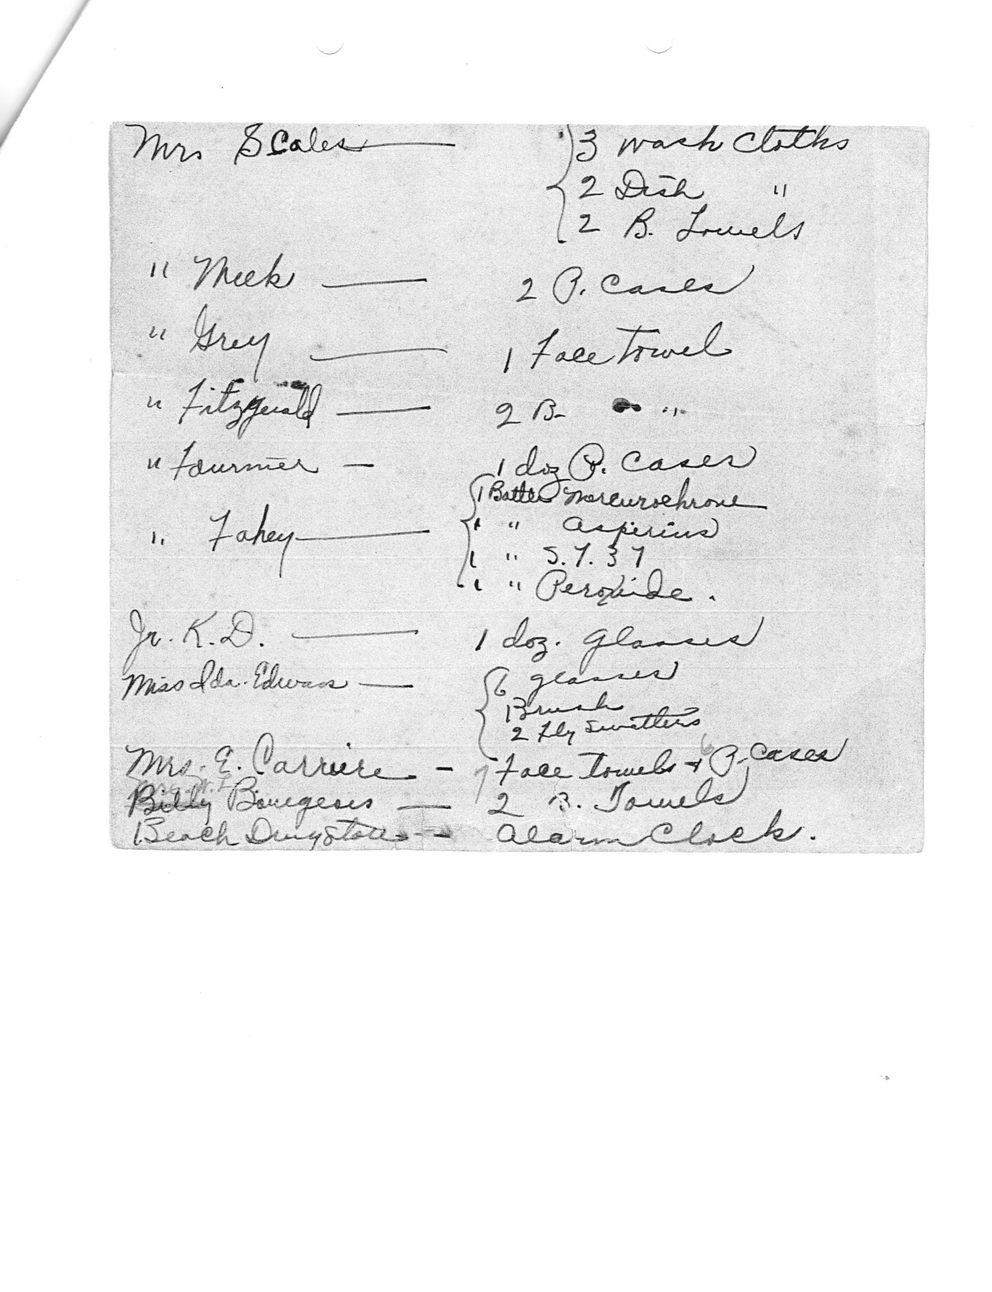 Mrs Scales — 3 wash cloths
2 Dish "
2 B. Towels
" Meek — 2 P. Cases
" Grey — 1 Face Towel
" Fitzgerald — 2 B- " "
" Fournier — 1 doz P. Cases
1 Bottle Mercurochrome
" Fahey — 1 " Asperins
1 " S.T. 37
1 " Peroxide.
Jr. K. D. — 1 doz. Glasses
Miss Ida Edwards — 6 glasses
1 Brush
2 Fly Swatters
Mrs. E. Carriere — 7 Face Towels + 6 P. Cases
Bourgeois — 2 B. Towels
Beach Drugstore — Alarm Clock.